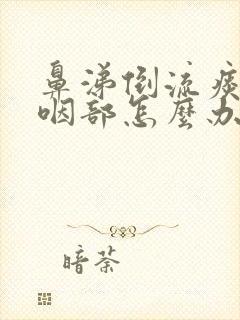 鼻涕倒流痰
咽部怎麼办
暗荼